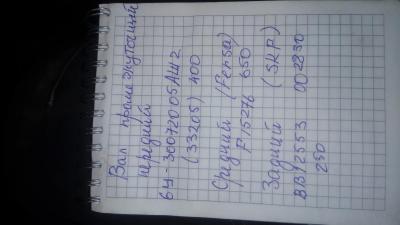 Вал промежуточный
передний
6Ц-30072005АШ2
(33205) 400
Средний (Fersa)
F15276 650
Задний (SKP)
ВВ12553 002830
250